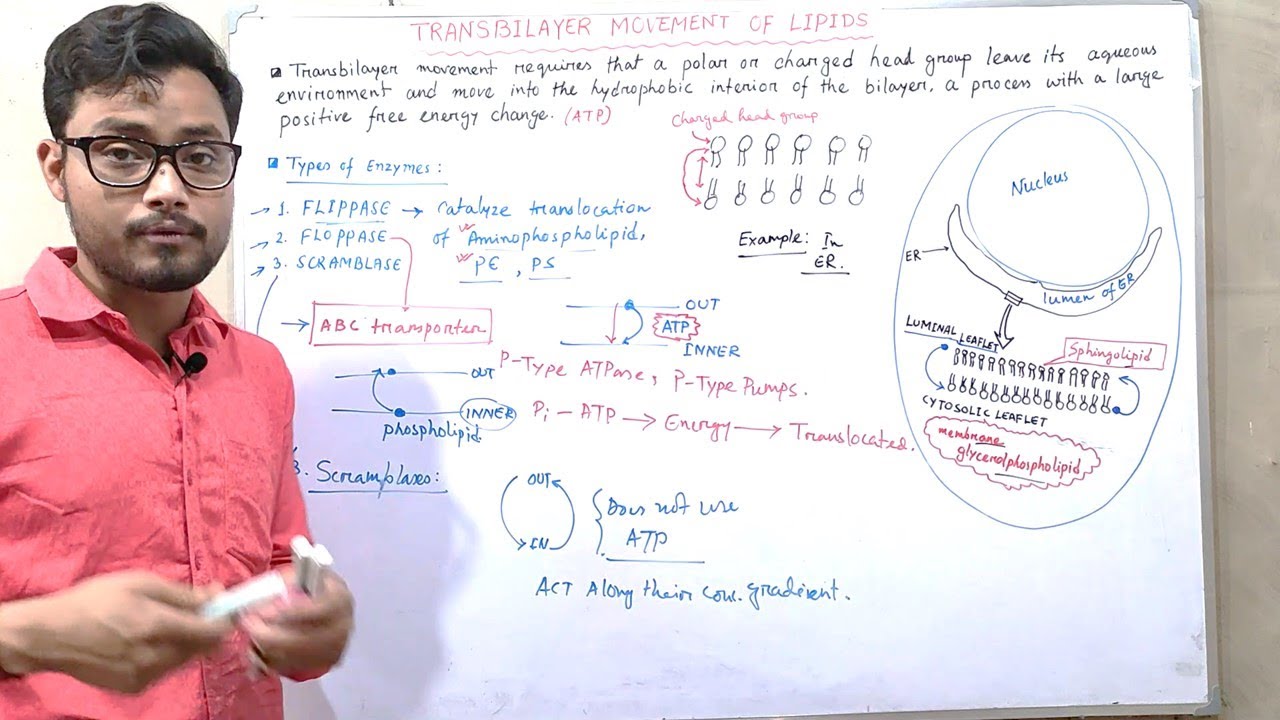 TRANSBILAYER MOVEMENT OF LIPIDS
Transbilayer movement requires that a polar or charged head group leave its aqueous
environment and move into the hydrophobic interior of the bilayer, a process with a large
positive free energy change. (ATP)
Charged head group
Types of Enzymes:
1. FLIPPASE → Catalyze translocation
of Aminophospholipid,
PE, PS
2. FLOPPASE
3. SCRAMBLASE
Example: In
ER.
ABC transporter
OUT
ATP
INNER
P-Type ATPase, P-Type Pumps.
OUT
INNER
phospholipid
Pi - ATP → Energy → Translocated.
3. Scramblases:
OUT
IN
Does not use
ATP
ACT Along their con. gradient.
Nucleus
ER
lumen of ER
LUMINAL LEAFLET
Sphingolipid
CYTOSOLIC LEAFLET
membrane
glycerolphospholipid